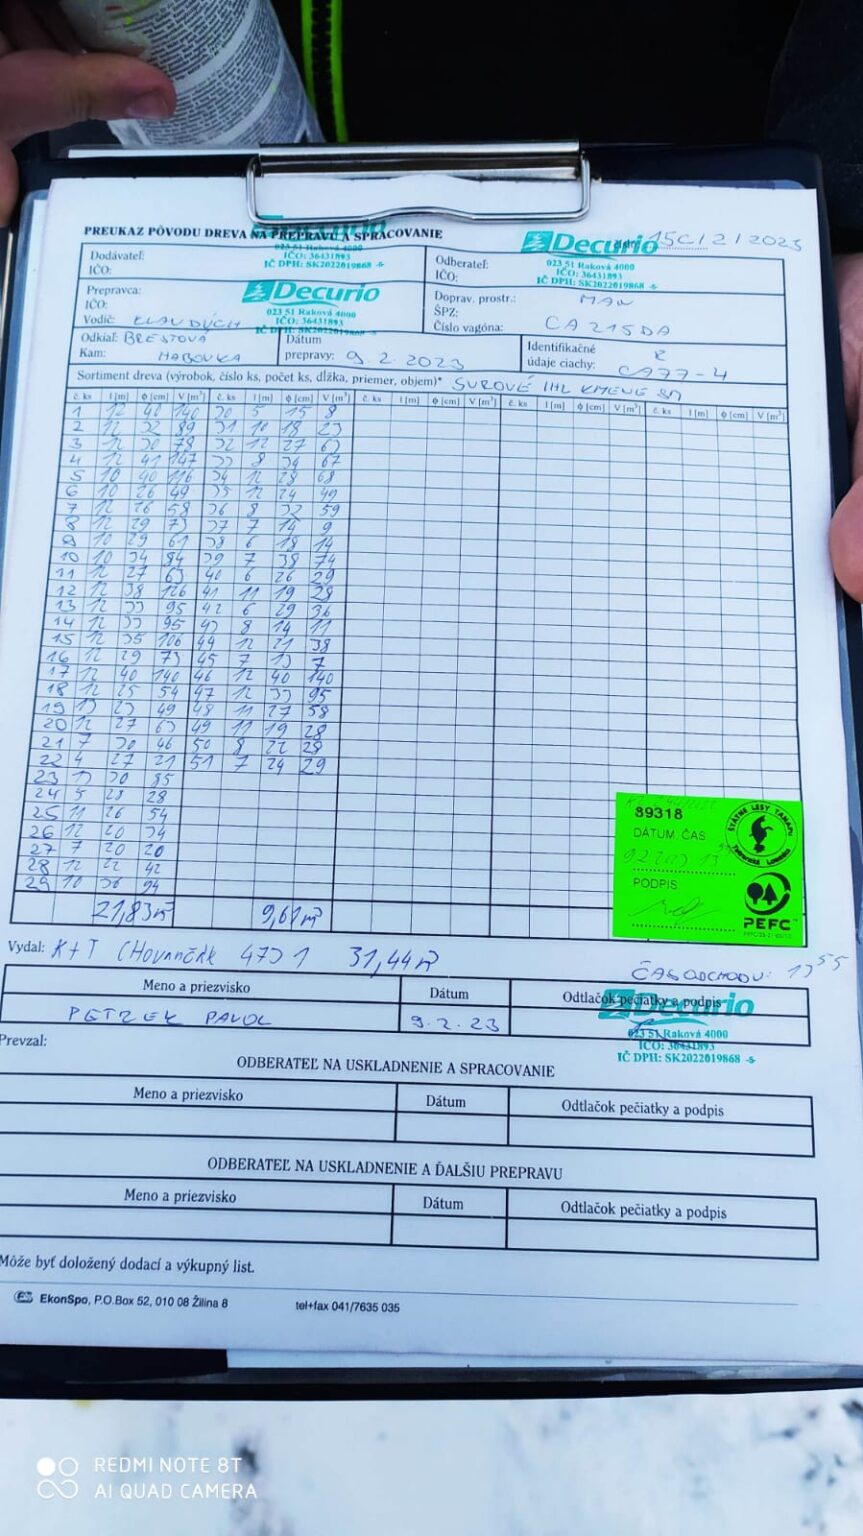 PREUKAZ PÔVODU DREVA NA PREPRAVU A SPRACOVANIE
Decurio
023 51 Raková 4000
IČO: 36431893
IČ DPH: SK2022019868 -5-
Decurio
023 51 Raková 4000
IČO: 36431893
IČ DPH: SK2022019868 -5-
15C/2/2023
Dodávateľ:
IČO:
Odberateľ:
IČO:
Prepravca:
IČO:
Vodič:
Decurio
023 51 Raková 4000
IČO: 36431893
IČ DPH: SK2022019868 -5-
Doprav. prostr.: MAN
ŠPZ:
Číslo vagóna: CA 215DA
Odkiaľ: BRESTOVÁ
Kam: HABOVKA
Dátum
prepravy: 9.2.2023
Identifikačné
údaje ciachy: CA77-4
Sortiment dreva (výrobok, číslo ks, počet ks, dĺžka, priemer, objem)* SUROVÉ IHL KMENE SM
č. ks l [m] ϕ [cm] V [m³] č. ks l [m] ϕ [cm] V [m³] č. ks l [m] ϕ [cm] V [m³] č. ks l [m] ϕ [cm] V [m³] č. ks l [m] ϕ [cm] V [m³]
1 12 40 140 30 5 15 8
2 12 32 89 31 10 18 23
3 12 30 79 32 12 27 63
4 12 41 147 33 8 34 67
5 10 40 116 34 12 28 68
6 10 26 49 35 12 24 49
7 12 26 58 36 8 32 59
8 12 29 73 37 7 14 9
9 10 29 61 38 6 18 14
10 10 34 84 39 7 38 74
11 12 27 63 40 6 26 29
12 12 38 126 41 11 19 28
13 12 33 95 42 6 29 36
14 12 33 95 43 8 14 11
15 12 35 106 44 12 21 38
16 12 29 73 45 7 13 7
17 12 40 140 46 12 40 140
18 12 25 54 47 12 33 95
19 13 23 49 48 11 27 58
20 12 27 63 49 11 19 28
21 7 30 46 50 8 22 28
22 4 27 21 51 7 24 29
23 13 30 85
24 5 28 28
25 11 26 54
26 12 20 34
27 7 20 20
28 12 22 42
29 10 36 94
21,83m³ 9,61m³
89318
DÁTUM, ČAS
PODPIS
ŠTÁTNE LESY TANAPU
Tatranská Lomnica
PEFC
Vydal: K+T 31,44m³
ČAS ODCHODU: 13 55
Meno a priezvisko Dátum Odtlačok pečiatky a podpis
PETREK PAVOL 9.2.23
Decurio
023 51 Raková 4000
IČO: 36431893
IČ DPH: SK2022019868 -5-
Prevzal:
ODBERATEĽ NA USKLADNENIE A SPRACOVANIE
Meno a priezvisko Dátum Odtlačok pečiatky a podpis
ODBERATEĽ NA USKLADNENIE A ĎALŠIU PREPRAVU
Meno a priezvisko Dátum Odtlačok pečiatky a podpis
Môže byť doložený dodací a výkupný list.
EkonSpo, P.O.Box 52, 010 08 Žilina 8 tel+fax 041/7635 035
REDMI NOTE 8T
AI QUAD CAMERA